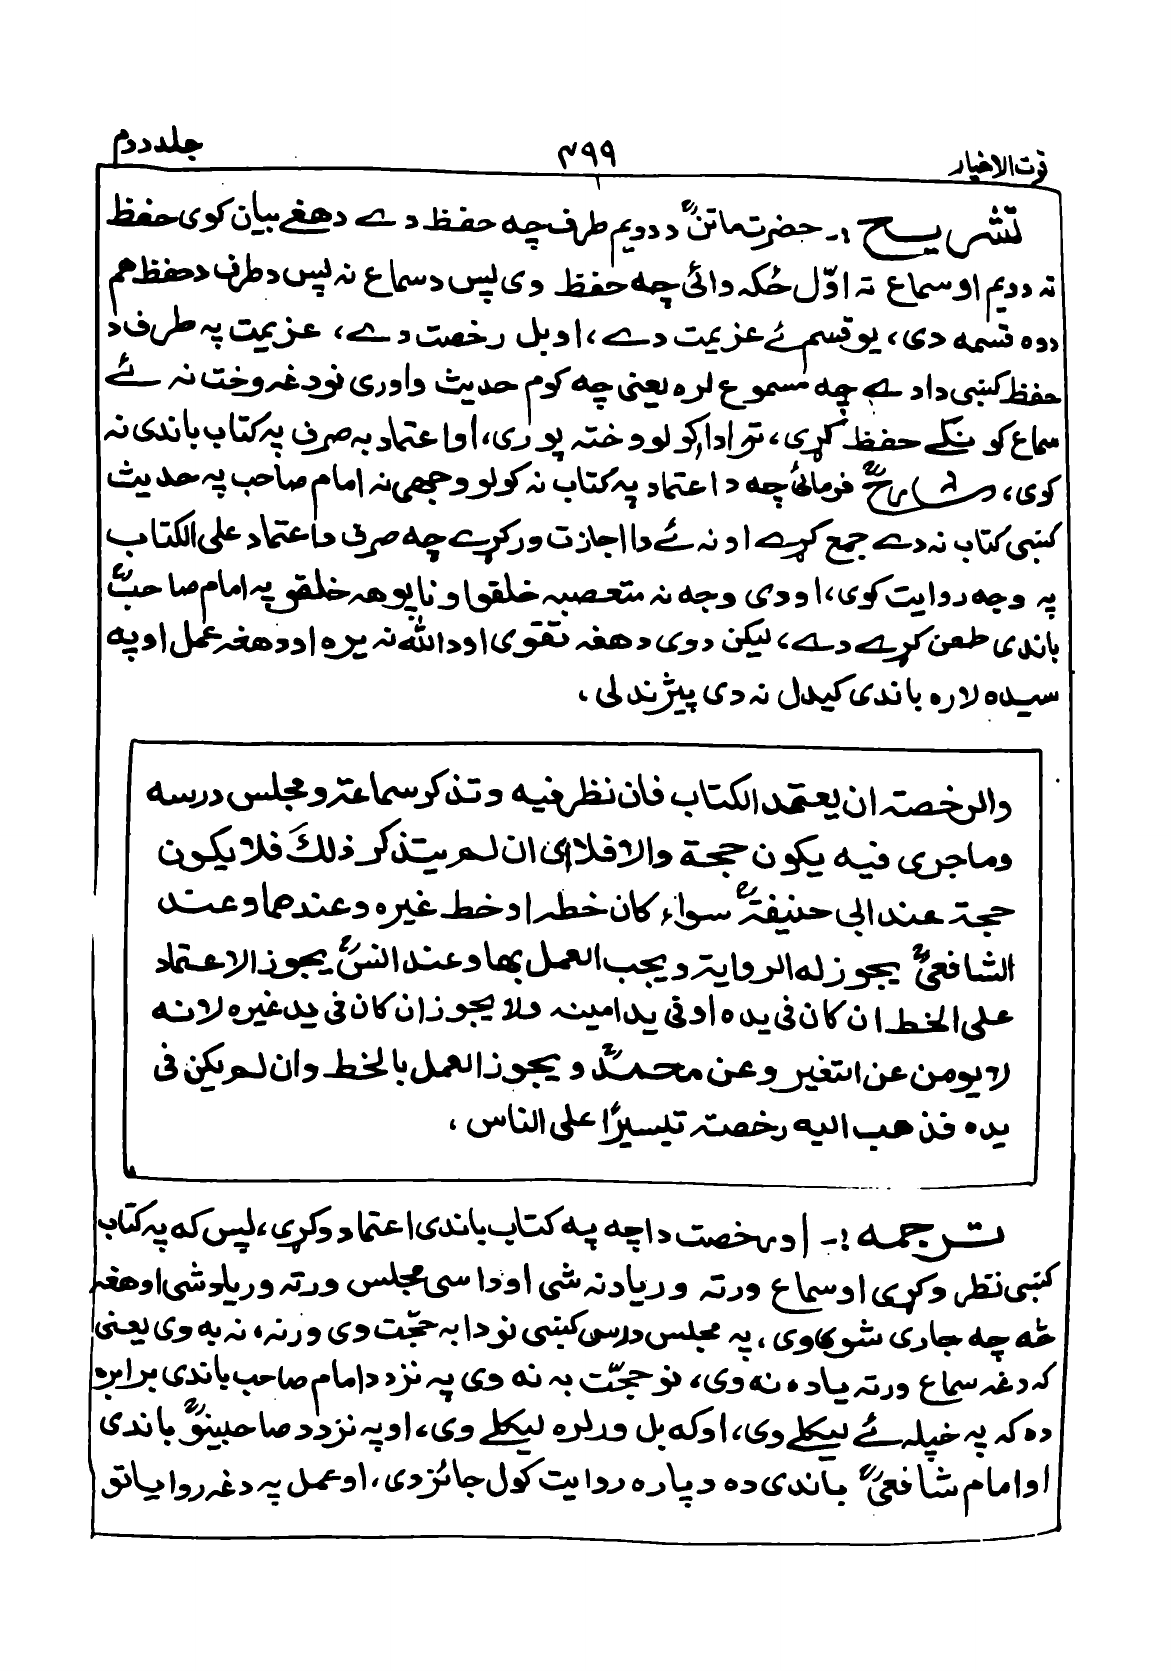 قوت الاخیار ۴۹۹ جلد دوم
تشریح :۔ حضرت ماتنؒ د دویم طرف چه حفظ دے دهغے بیان کوی حفظ
ته دویم او سماع ته اوّل ځکه وائی چه حفظ وی پس د سماع نه پس د طرف د حفظ هم
دوه قسمه دی، یو قسم ئے عزیمت دے، او بل رخصت دے، عزیمت په طرف د
حفظ کښی دادے چه مسموع لره یعنی چه کوم حدیث واوری نو د غه وخت نه ئے
سماع کونکے حفظ کړی، تر ادا کولو وخته پوری، او اعتماد به صرف په کتاب باندی نه
کوی، شارحؒ فرمائی چه د اعتماد په کتاب نه کولو وجهی نه امام صاحب په حدیث
کښی کتاب نه دے جمع کړے او نه ئے دا اجازت ورکړے چه صرف د اعتماد علی الکتاب
په وجه روایت کوی، او دی وجه نه متعصبه خلقو او ناپوهه خلقو په امام صاحبؒ
باندی طعن کړے دے، لیکن دوی د هغه تقوی او د الله نه یره او د هغه عمل او په
سیده لاره باندی کیدل نه دی پیژندلی ،
والرخصته ان یعتمد الکتاب فان نظر فیه و تذکر سماعته و مجلس درسه
وما جری فیه یکون حجة والا فلا ای ان لم یتذکر ذلكَ فلا یکون
حجة عند ابی حنیفةؒ سواء کان خطه او خط غیره و عندهما و عند
الشافعیؒ یجوز له الروایة و یجب العمل بها و عند انسؒ یجوز الاعتماد
علی الخط ان کان فی یده او فی ید امینه ولا یجوز ان کان فی ید غیره لانه
لا یومن عن التغیر و عن محمدؒ و یجوز العمل بالخط وان لم یکن فی
یده فذهب الیه رخصته تیسیرًا علی الناس ،
ترجمه :۔ او رخصت دا چه په کتاب باندی اعتماد وکړی، پس که په کتاب
کښی نظر وکړی او سماع ورته وریاد نه شی او دا سی مجلس ورته وریاد شی او هغه
څه چه جاری شوی وی، په مجلس درس کښی نو دا به حجّت وی ورنه، نه به وی یعنی
که دغه سماع ورته یاده نه وی، نو حجّت به نه وی په نزد د امام صاحب باندی برابره
ده که په خپله ئے لیکلے وی، او که بل ورلره لیکلے وی، او په نزد د صاحبینوؒ باندی
او امام شافعیؒ باندی ده دپاره روایت کول جائز دی، او عمل په دغه روایاتو